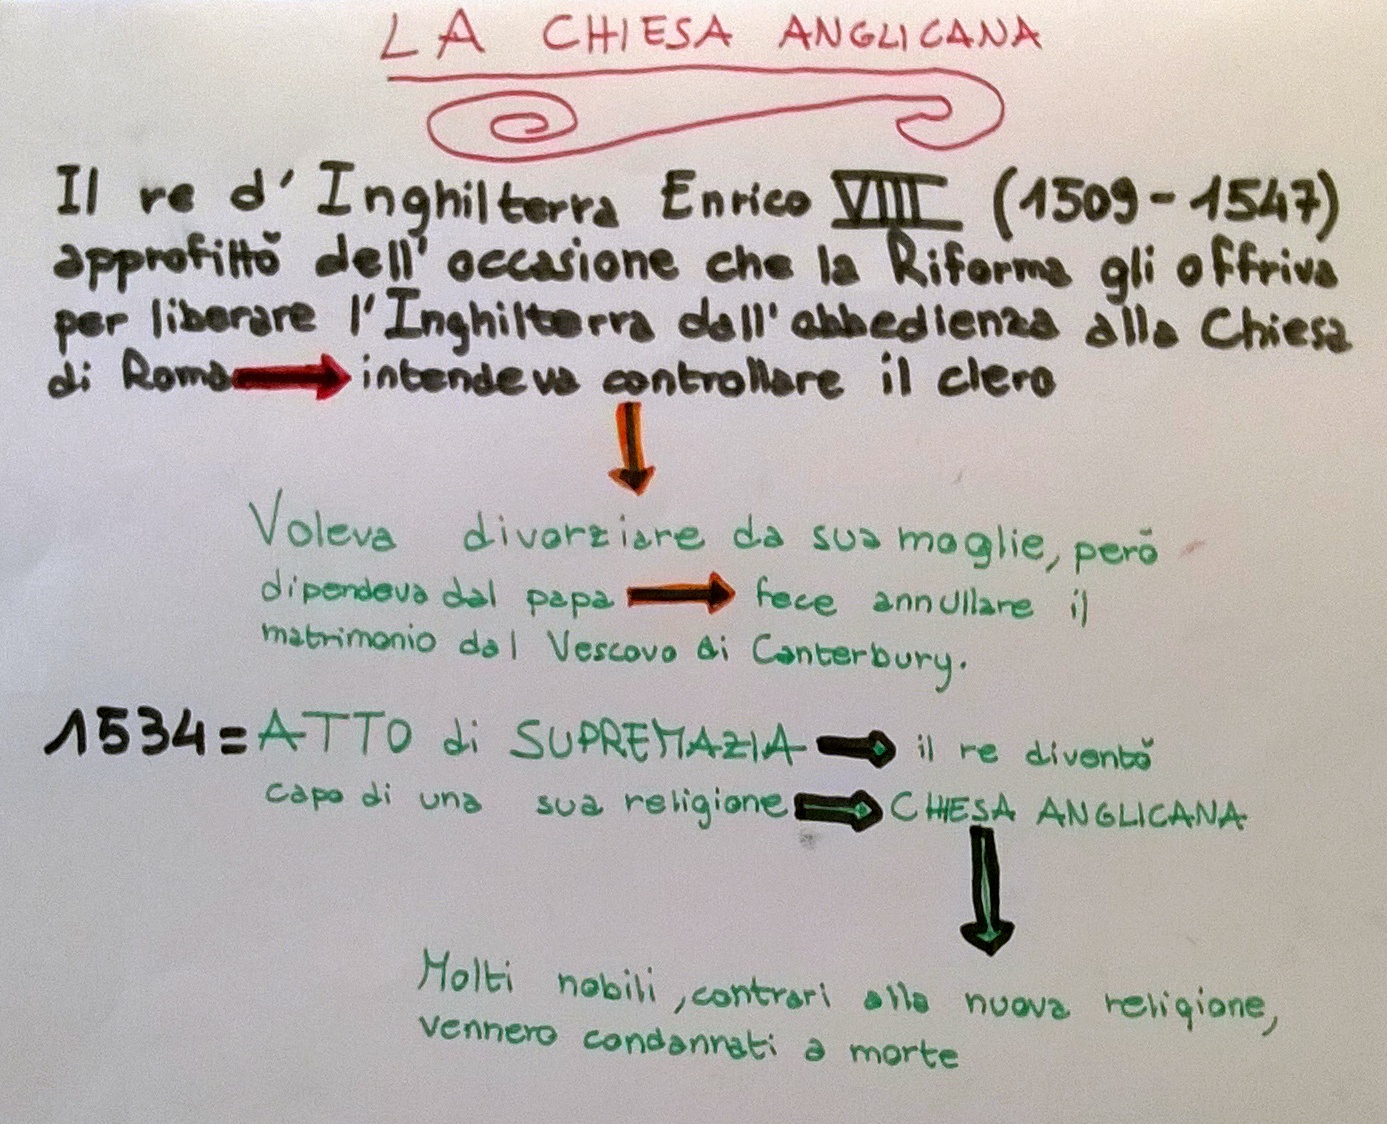 LA CHIESA ANGLICANA
Il re d'Inghilterra Enrico VIII (1509-1547)
approfittò dell'occasione che la Riforma gli offriva
per liberare l'Inghilterra dall'abbedienza alla Chiesa
di Roma → intendeva controllare il clero
Voleva divorziare da sua moglie, però
dipendeva dal papa → fece annullare il
matrimonio dal Vescovo di Canterbury.
1534 = ATTO di SUPREMAZIA → il re diventò
capo di una sua religione → CHIESA ANGLICANA
Molti nobili, contrari alla nuova religione,
vennero condannati a morte